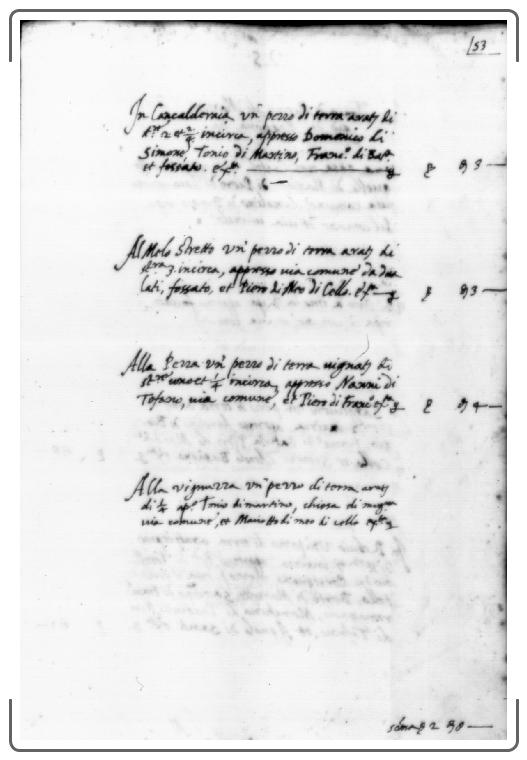 53
In Cancalderaia un pezzo di terra arat di
st.re 2 et 2/4 incirca, appresso Domenico di
Simone, Tonio di Martino, Franc.o di Batt.
et fossato. 3
Al Molo Stretto un pezzo di terra arat di
incirca, appresso via comune da dua
lati, fossato, et Piero di Meo di Cello. 3
Alla Pezza un pezzo di terra vignat di
st.re uno et 1/4 incirca, appresso Nanni di
Tofano, via comune, et Piero di Franc.o 4
Alla vignazza un pezzo di terra arat
di ap.o Tonio di martino, chiesa di
via comune, et Mariotto di meo di cello
2 8